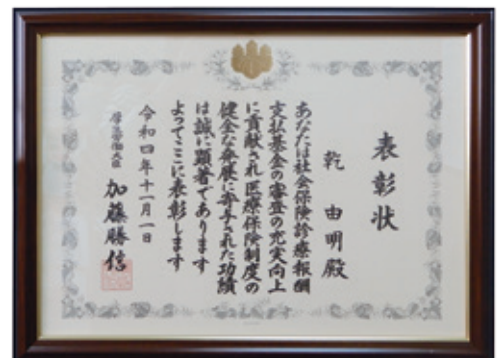 表彰状
乾 由明殿
あなたは社会保険診療報酬
支払基金の審査の充実向上
に貢献され医療保険制度の
健全な発展に寄与された功績
は誠に顕著であります
よってここに表彰します
令和四年十一月一日
厚生労働大臣 加藤勝信